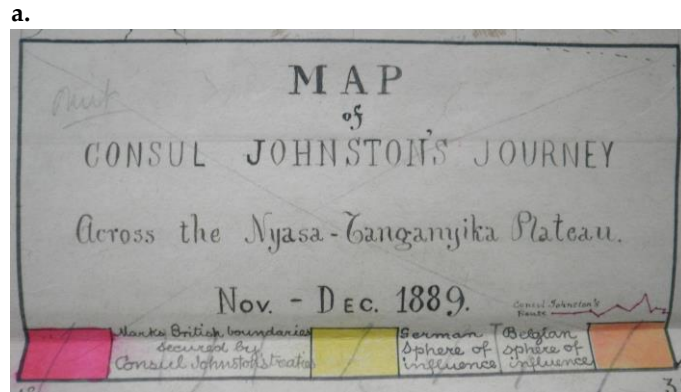 a.
MAP
of
CONSUL JOHNSTON'S JOURNEY
Across the Nyasa-Tanganyika Plateau.
Nov. - DEC. 1889.
Consul Johnston's
Route
Marks British boundaries
secured by
Consul Johnston's treaties
German
sphere of
influence
Belgian
sphere of
influence